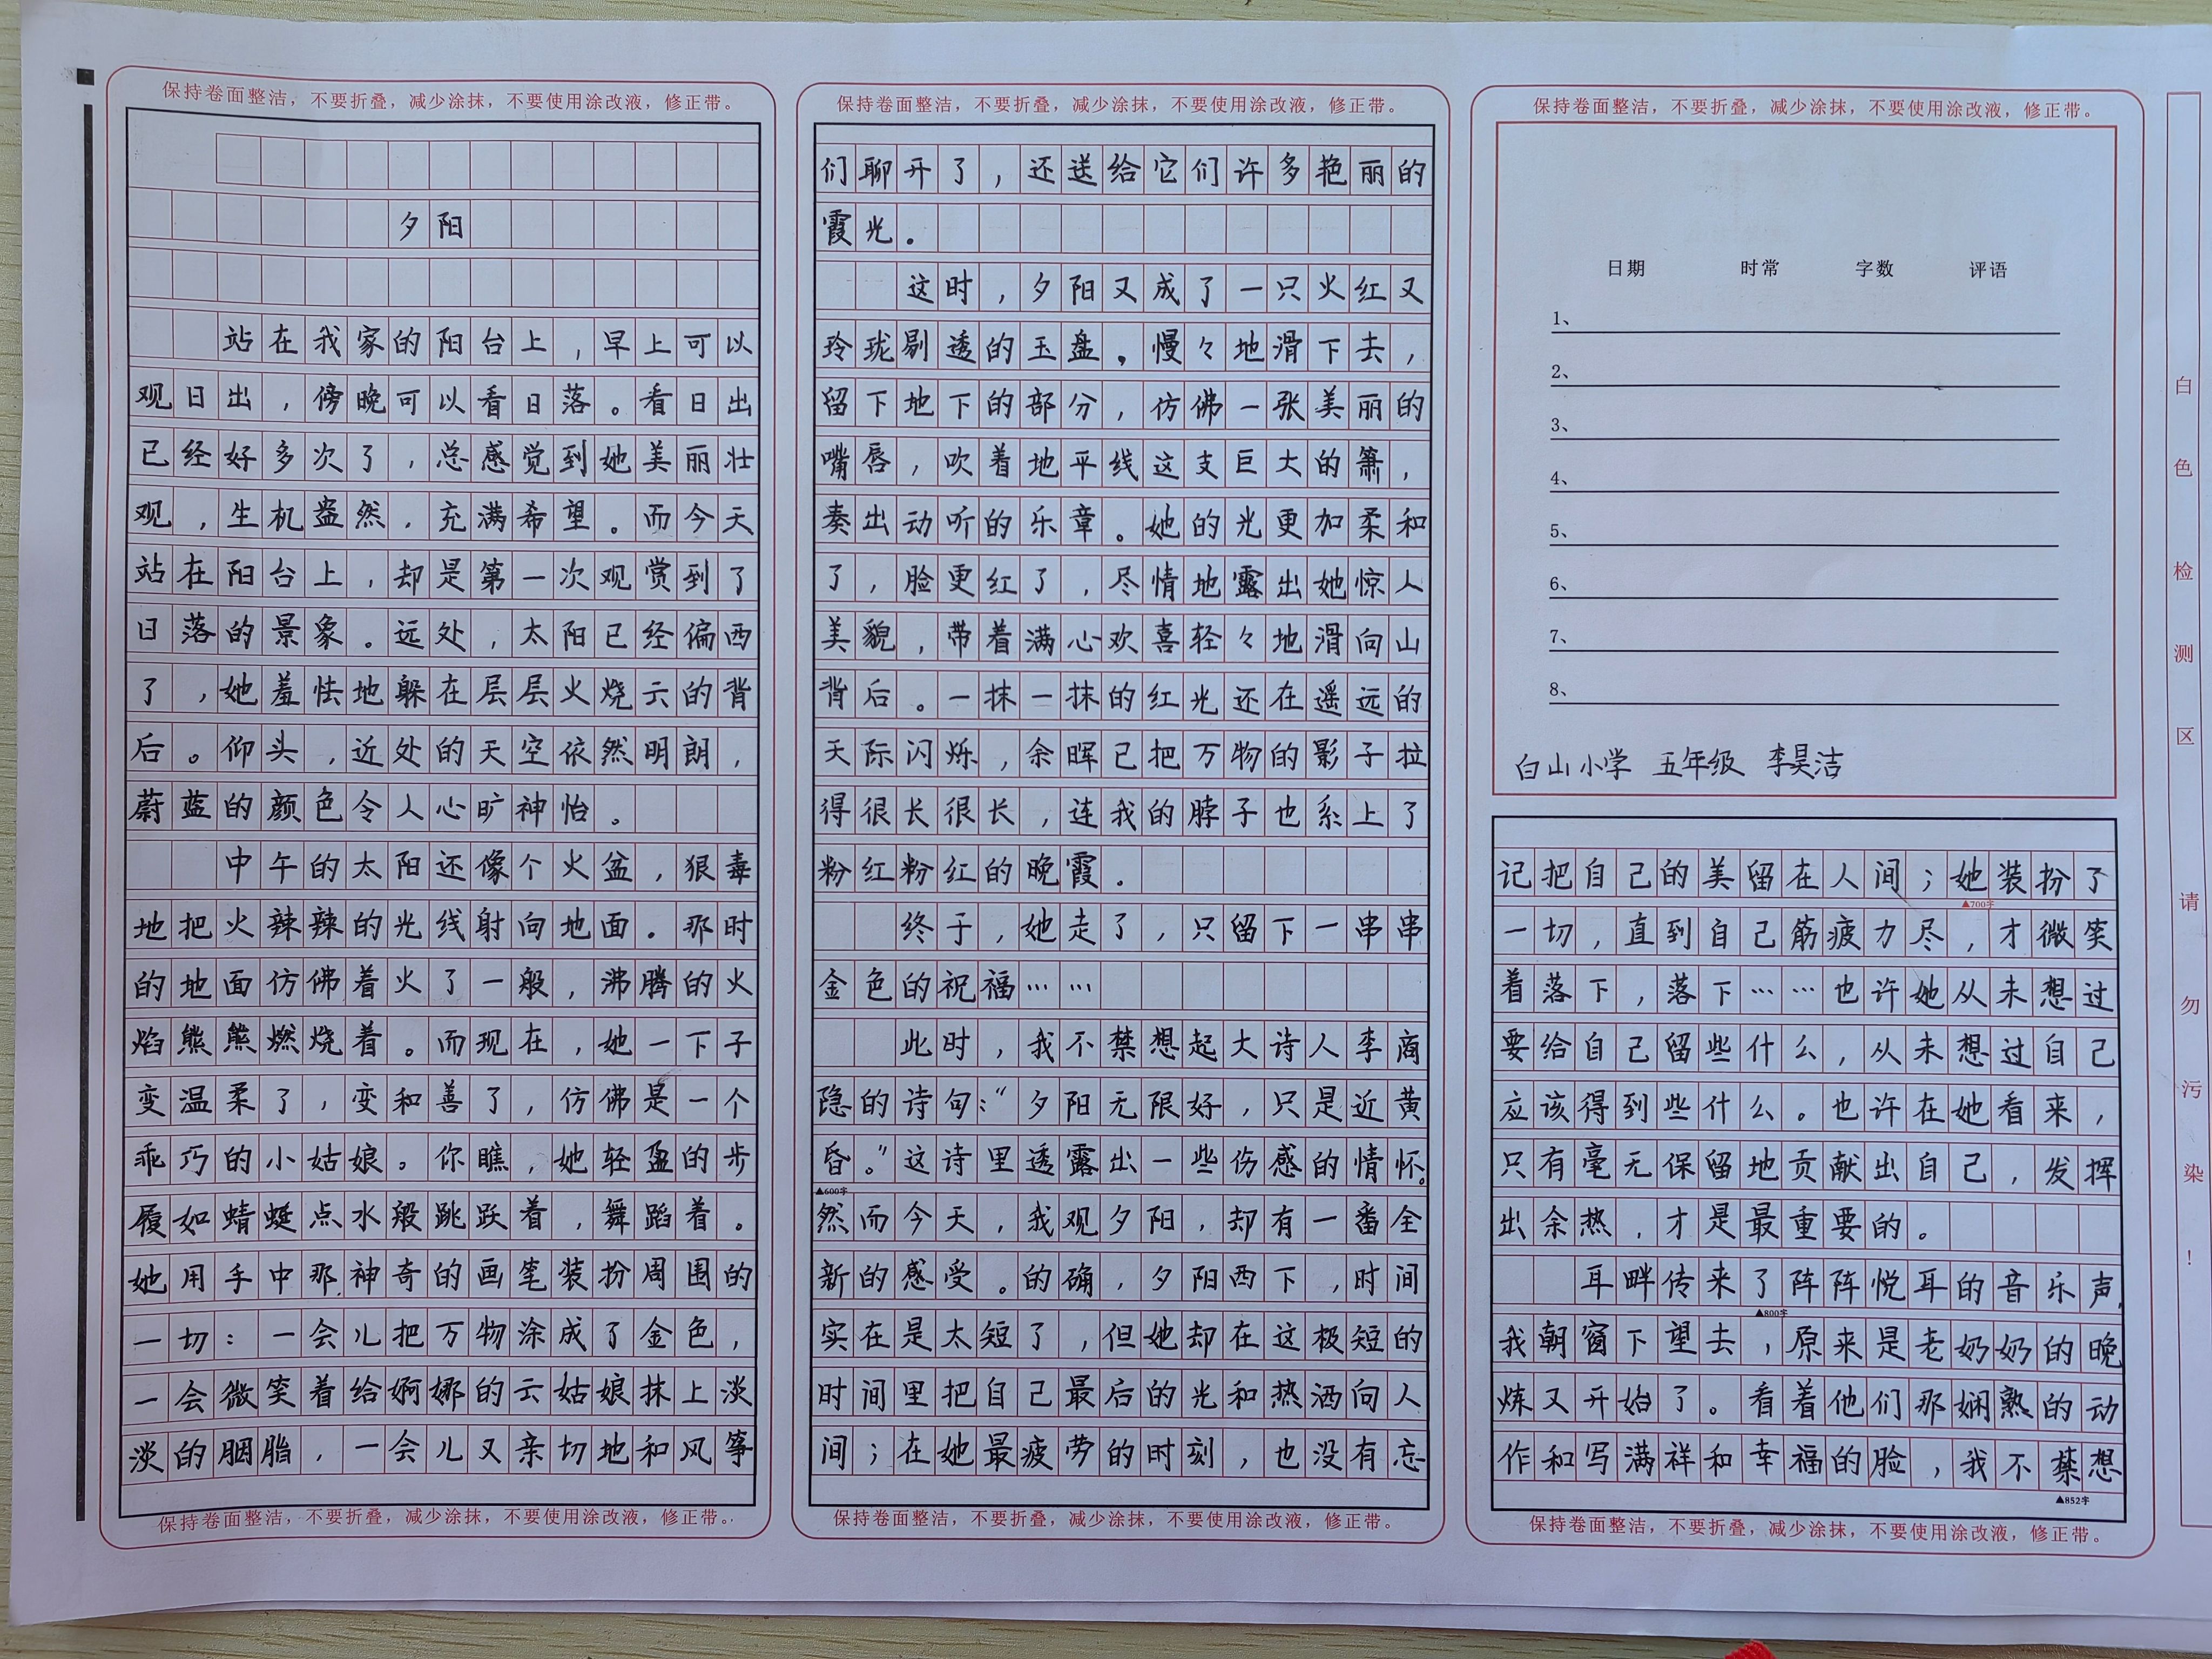 保持卷面整洁，不要折叠，减少涂抹，不要使用涂改液，修正带。
夕阳
站在我家的阳台上，早上可以
观日出，傍晚可以看日落。看日出
已经好多次了，总感觉到她美丽壮
观，生机盎然，充满希望。而今天
站在阳台上，却是第一次观赏到了
日落的景象。远处，太阳已经偏西
了，她羞怯地躲在层层火烧云的背
后。仰头，近处的天空依然明朗，
蔚蓝的颜色令人心旷神怡。
中午的太阳还像个火盆，狠毒
地把火辣辣的光线射向地面。那时
的地面仿佛着火了一般，沸腾的火
焰熊熊燃烧着。而现在，她一下子
变温柔了，变和善了，仿佛是一个
乖巧的小姑娘。你瞧，她轻盈的步
履如蜻蜓点水般跳跃着，舞蹈着。
她用手中那神奇的画笔装扮周围的
一切：一会儿把万物涂成了金色，
一会微笑着给婀娜的云姑娘抹上淡
淡的胭脂，一会儿又亲切地和风筝
保持卷面整洁，不要折叠，减少涂抹，不要使用涂改液，修正带。
保持卷面整洁，不要折叠，减少涂抹，不要使用涂改液，修正带。
们聊开了，还送给它们许多艳丽的
霞光。
这时，夕阳又成了一只火红又
玲珑剔透的玉盘。慢々地滑下去，
留下地下的部分，仿佛一张美丽的
嘴唇，吹着地平线这支巨大的箫，
奏出动听的乐章。她的光更加柔和
了，脸更红了，尽情地露出她惊人
美貌，带着满心欢喜轻々地滑向山
背后。一抹一抹的红光还在遥远的
天际闪烁，余晖已把万物的影子拉
得很长很长，连我的脖子也系上了
粉红粉红的晚霞。
终于，她走了，只留下一串串
金色的祝福……
此时，我不禁想起大诗人李商
隐的诗句：“夕阳无限好，只是近黄
昏。”这诗里透露出一些伤感的情怀。
▲600字
然而今天，我观夕阳，却有一番全
新的感受。的确，夕阳西下，时间
实在是太短了，但她却在这极短的
时间里把自己最后的光和热洒向人
间；在她最疲劳的时刻，也没有忘
保持卷面整洁，不要折叠，减少涂抹，不要使用涂改液，修正带。
保持卷面整洁，不要折叠，减少涂抹，不要使用涂改液，修正带。
日期 时常 字数 评语
1、
2、
3、
4、
5、
6、
7、
8、
白山小学 五年级 李昊洁
记把自己的美留在人间；她装扮了
▲700字
一切，直到自己筋疲力尽，才微笑
着落下，落下……也许她从未想过
要给自己留些什么，从未想过自己
应该得到些什么。也许在她看来，
只有毫无保留地贡献出自己，发挥
出余热，才是最重要的。
耳畔传来了阵阵悦耳的音乐声，
▲800字
我朝窗下望去，原来是老奶奶的晚
炼又开始了。看着他们那娴熟的动
作和写满祥和幸福的脸，我不禁想
▲852字
保持卷面整洁，不要折叠，减少涂抹，不要使用涂改液，修正带。
白色检测区 请勿污染！